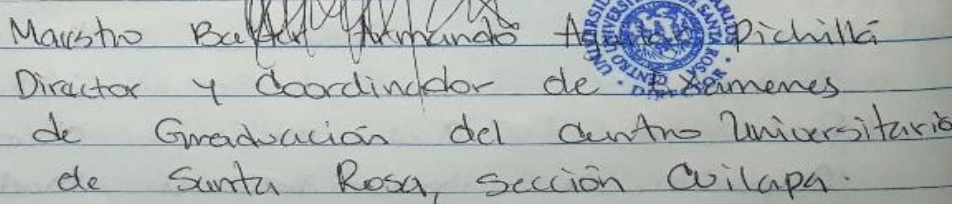 Maestro Armando Pichillá
Director y Coordinador de Exámenes
de Graduación del Centro Universitario
de Santa Rosa, sección Cuilapa.
SANTA ROSA